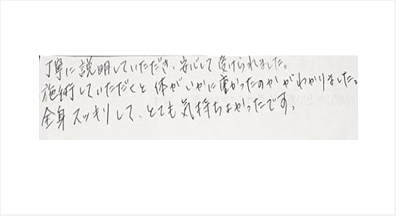 丁寧に説明していただき、安心して受けられました。
施術していただくと体がいかに重かったのかがわかりました。
全身スッキリして、とても気持ちよかったです。